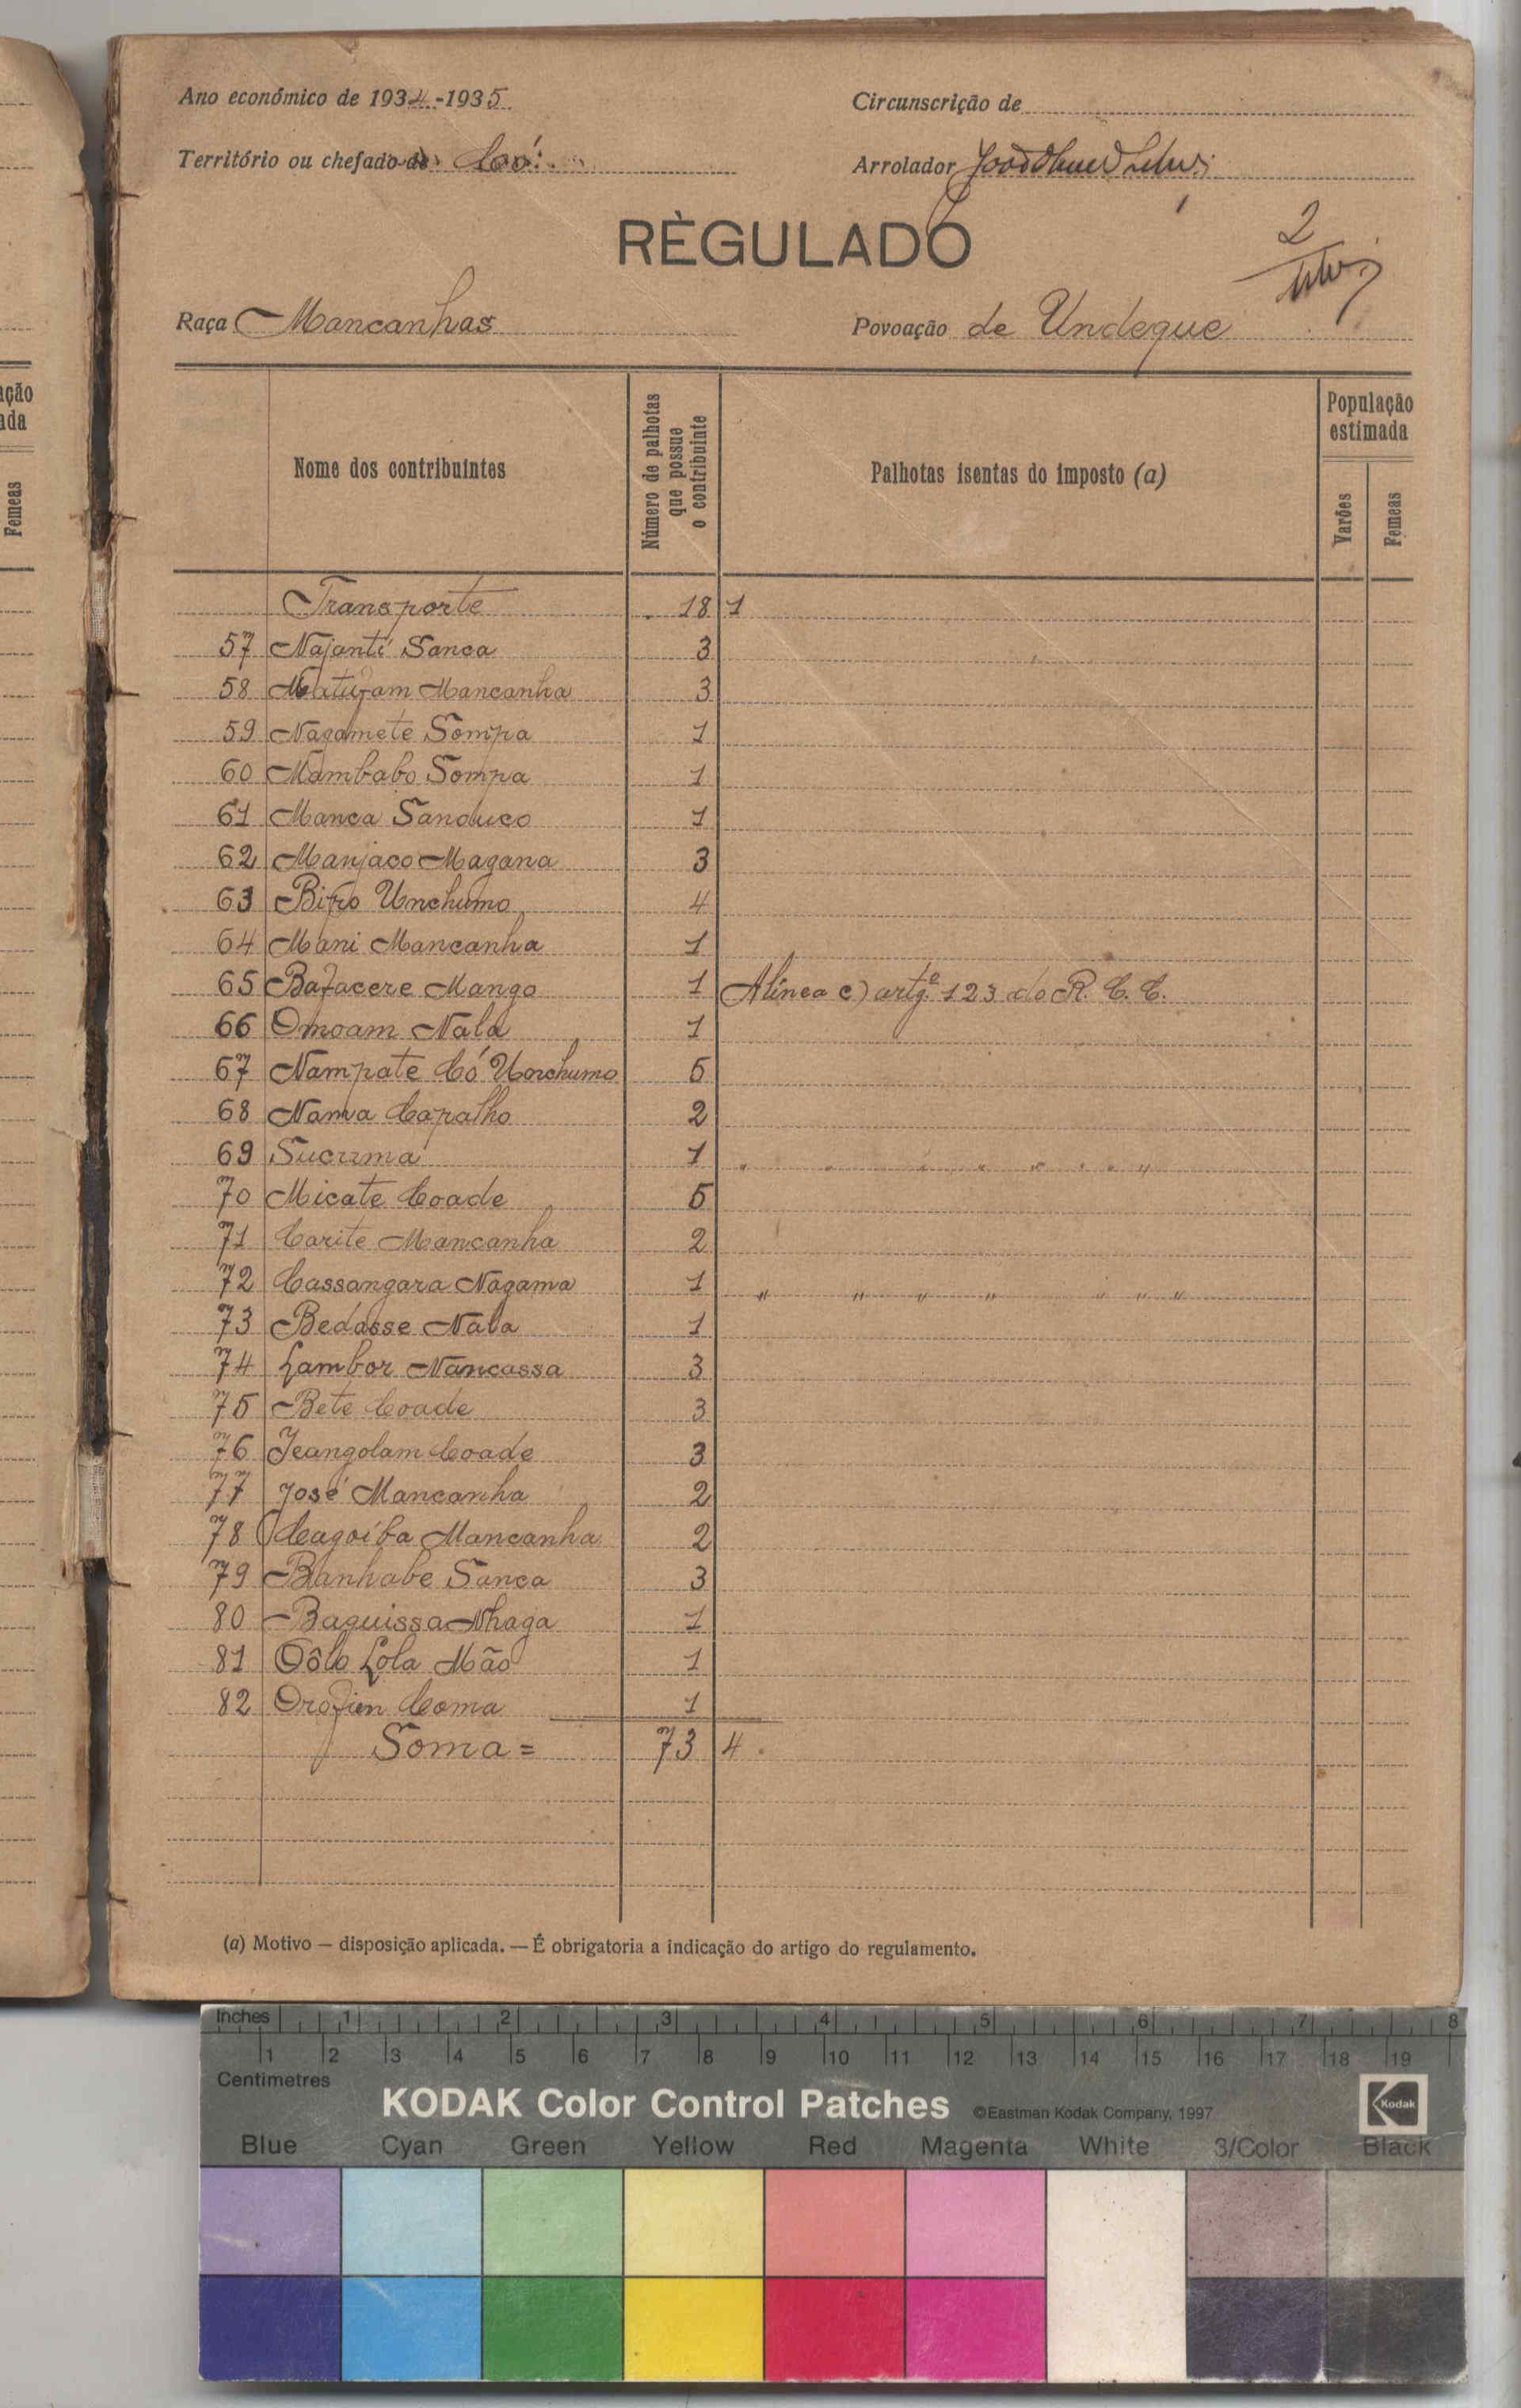 ação
ada
Femeas
Ano económico de 1934-1935
Circunscrição de
Território ou chefado de Có
Arrolador
RÈGULADO
2
Raça Mancanhas
Povoação de Undeque
Nome dos contribuintes
Número de palhotas que possue o contribuinte
Palhotas isentas do imposto (a)
População estimada
Varões
Femeas
Transporte 18 1
57 Najanti Sanca 3
58 Mancanha 3
59 Nagamete Sompa 1
60 Mambabo Sompa 1
61 Manca Sanduco 1
62 Manjaco Magana 3
63 Bifio Unchumo 4
64 Mani Mancanha 1
65 Bafacere Mango 1 Alinea c) artgº 123 do R. C. C.
66 Omoam Nala 1
67 Nampate Có Unchumo 5
68 Nama Capalho 2
69 Sucuma 1 " " " " " " " "
70 Micate Coade 5
71 Carite Mancanha 2
72 Cassangara Nagama 1 " " " " " " "
73 Bedasse Nala 1
74 Lambor Nancassa 3
75 Bete Coade 3
76 Jeangolam Coade 3
77 José Mancanha 2
78 Cagoíba Mancanha 2
79 Banhabe Sanca 3
80 Baguissa Nhaga 1
81 Oôlo Lola Mão 1
82 Orofim Coma 1
Soma = 73 4
(a) Motivo — disposição aplicada. — É obrigatoria a indicação do artigo do regulamento.
Inches 1 2 3 4 5 6 7 8
1 2 3 4 5 6 7 8 9 10 11 12 13 14 15 16 17 18 19
Centimetres
KODAK Color Control Patches ©Eastman Kodak Company, 1997 Kodak
Blue Cyan Green Yellow Red Magenta White 3/Color Black